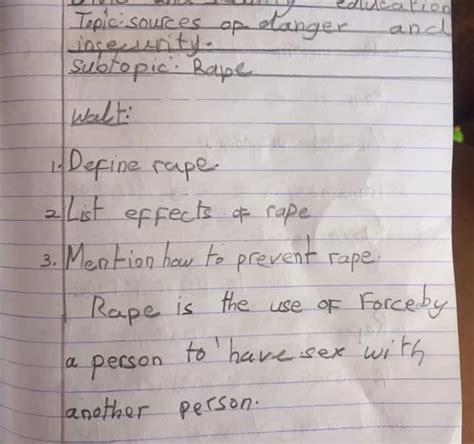 and security education
Topic: sources of danger and
insecurity.
Subtopic: Rape
Walt:
1. Define rape.
2 List effects of rape
3. Mention how to prevent rape.
Rape is the use of Force by
a person to have sex with
another person.